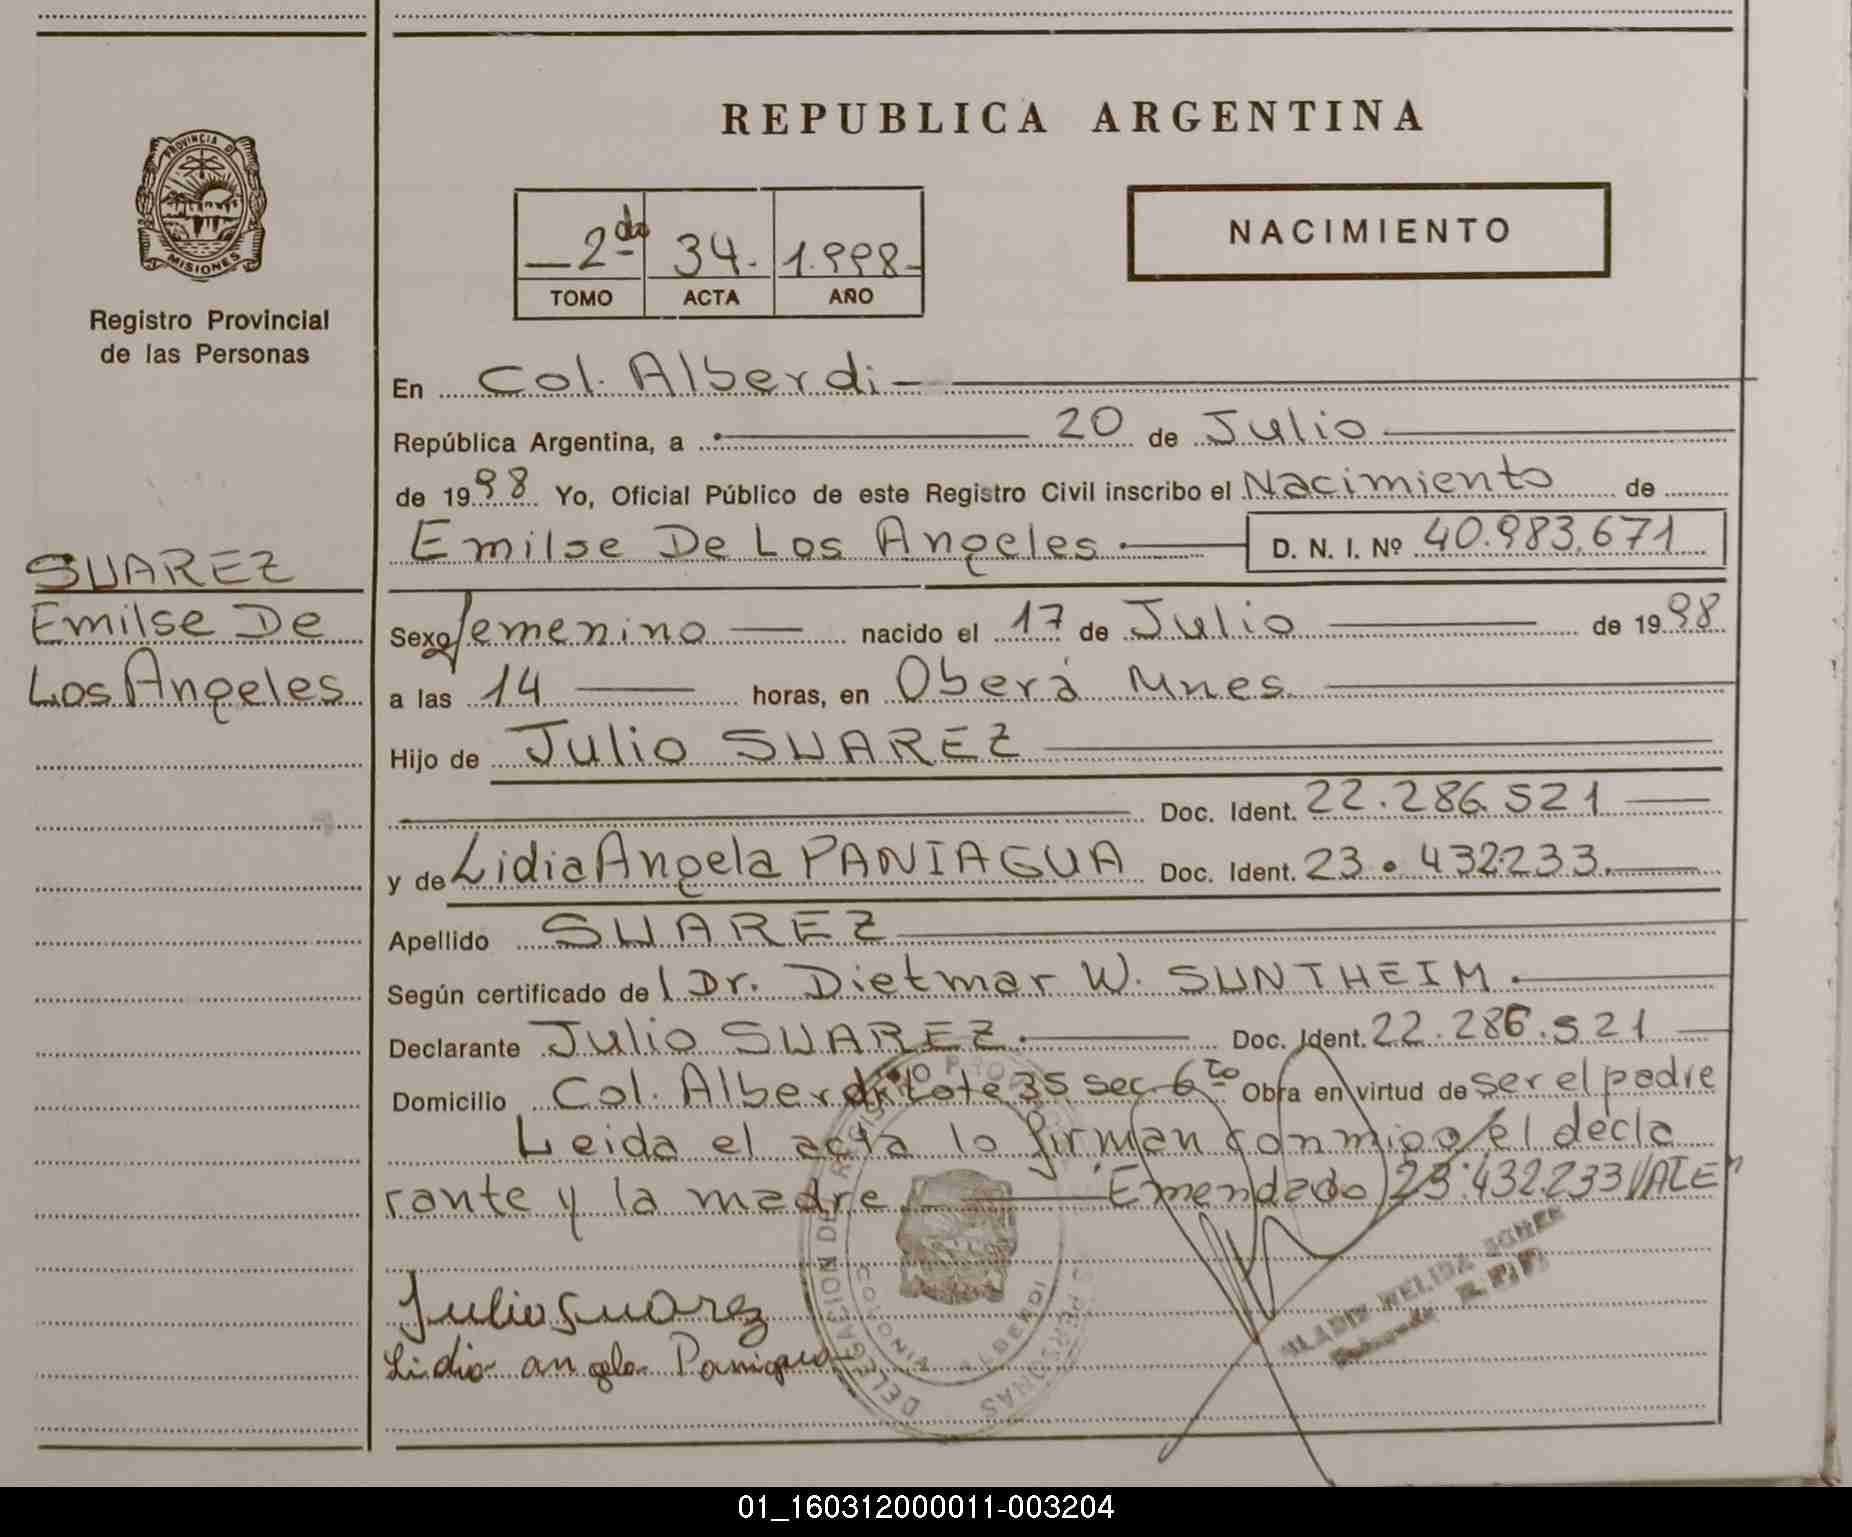 REPUBLICA ARGENTINA
PROVINCIA DE
MISIONES
Registro Provincial
de las Personas
2da 34. 1.998
TOMO ACTA AÑO
NACIMIENTO
SUAREZ
Emilse De
Los Angeles
En Col. Alberdi
República Argentina, a 20 de Julio
de 1998 Yo, Oficial Público de este Registro Civil inscribo el Nacimiento de
Emilse De Los Angeles. D. N. I. Nº 40.983.671
Sexo femenino nacido el 17 de Julio de 1998
a las 14 horas, en Oberá Mnes.
Hijo de Julio SUAREZ
Doc. Ident. 22.286.521
y de Lidia Angela PANIAGUA Doc. Ident. 23.432.233.
Apellido SUAREZ
Según certificado del Dr. Dietmar W. SUNTHEIM.
Declarante Julio SUAREZ. Doc. Ident. 22.286.521
Domicilio Col. Alberdi Lote 35 sec 6to Obra en virtud de ser el padre
Leida el acta lo firman conmigo el decla
rante y la madre. Emendado 23.432.233 VALE"
Julio Suarez
Lidia angela Paniagua
DELEGACION DEL REGISTRO PROV. PERSONAS
COLONIA ALBERDI
NELIDA
01_160312000011-003204